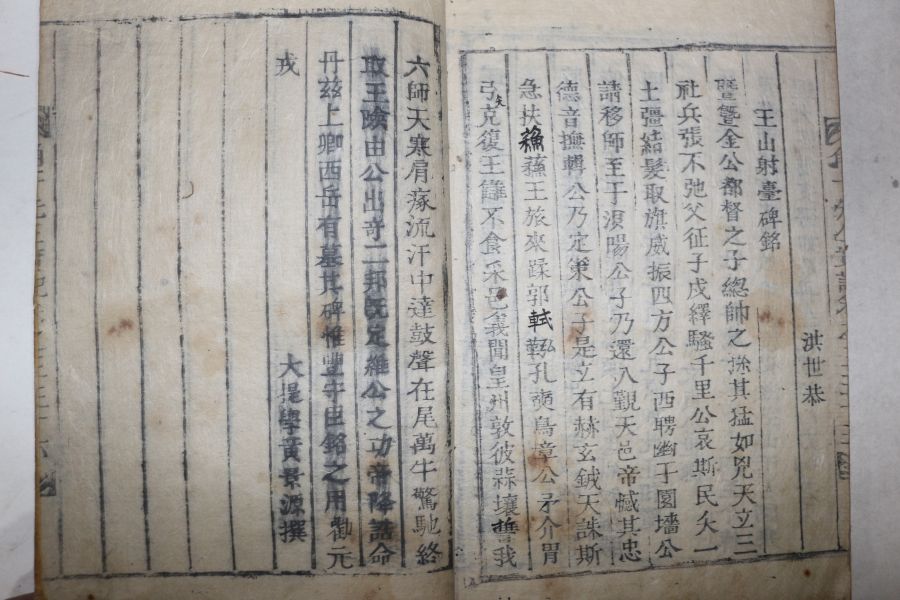 洪世恭
王山射臺碑銘
曁曁金公都督之子緫帥之孫其猛如兕天立三
社兵張不弛父征子戍繹騷千里公哀斯民矢一
土彊結髮取旗威振四方公子西聘幽于園墻公
請移師至于浿陽公子乃還入覲天邑帝慽其忠
德音撫輯公乃定策公子是立有赫玄鉞天誅斯
急扶穪蘓王旅來蹂郭軾靷孔奭鳥章公矛介冑
引矢克復王讎不食采邑我聞皇州敦彼蒜壤誓我
六師天寒肩瘃流汗中達鼓聲在尾萬牛驚馳終
取王險由公出奇二邦旣定維公之功帝降誥命
丹兹上卿西岳有墓其碑惟豐守臣銘之用勸元
戎
大提學黃景源撰